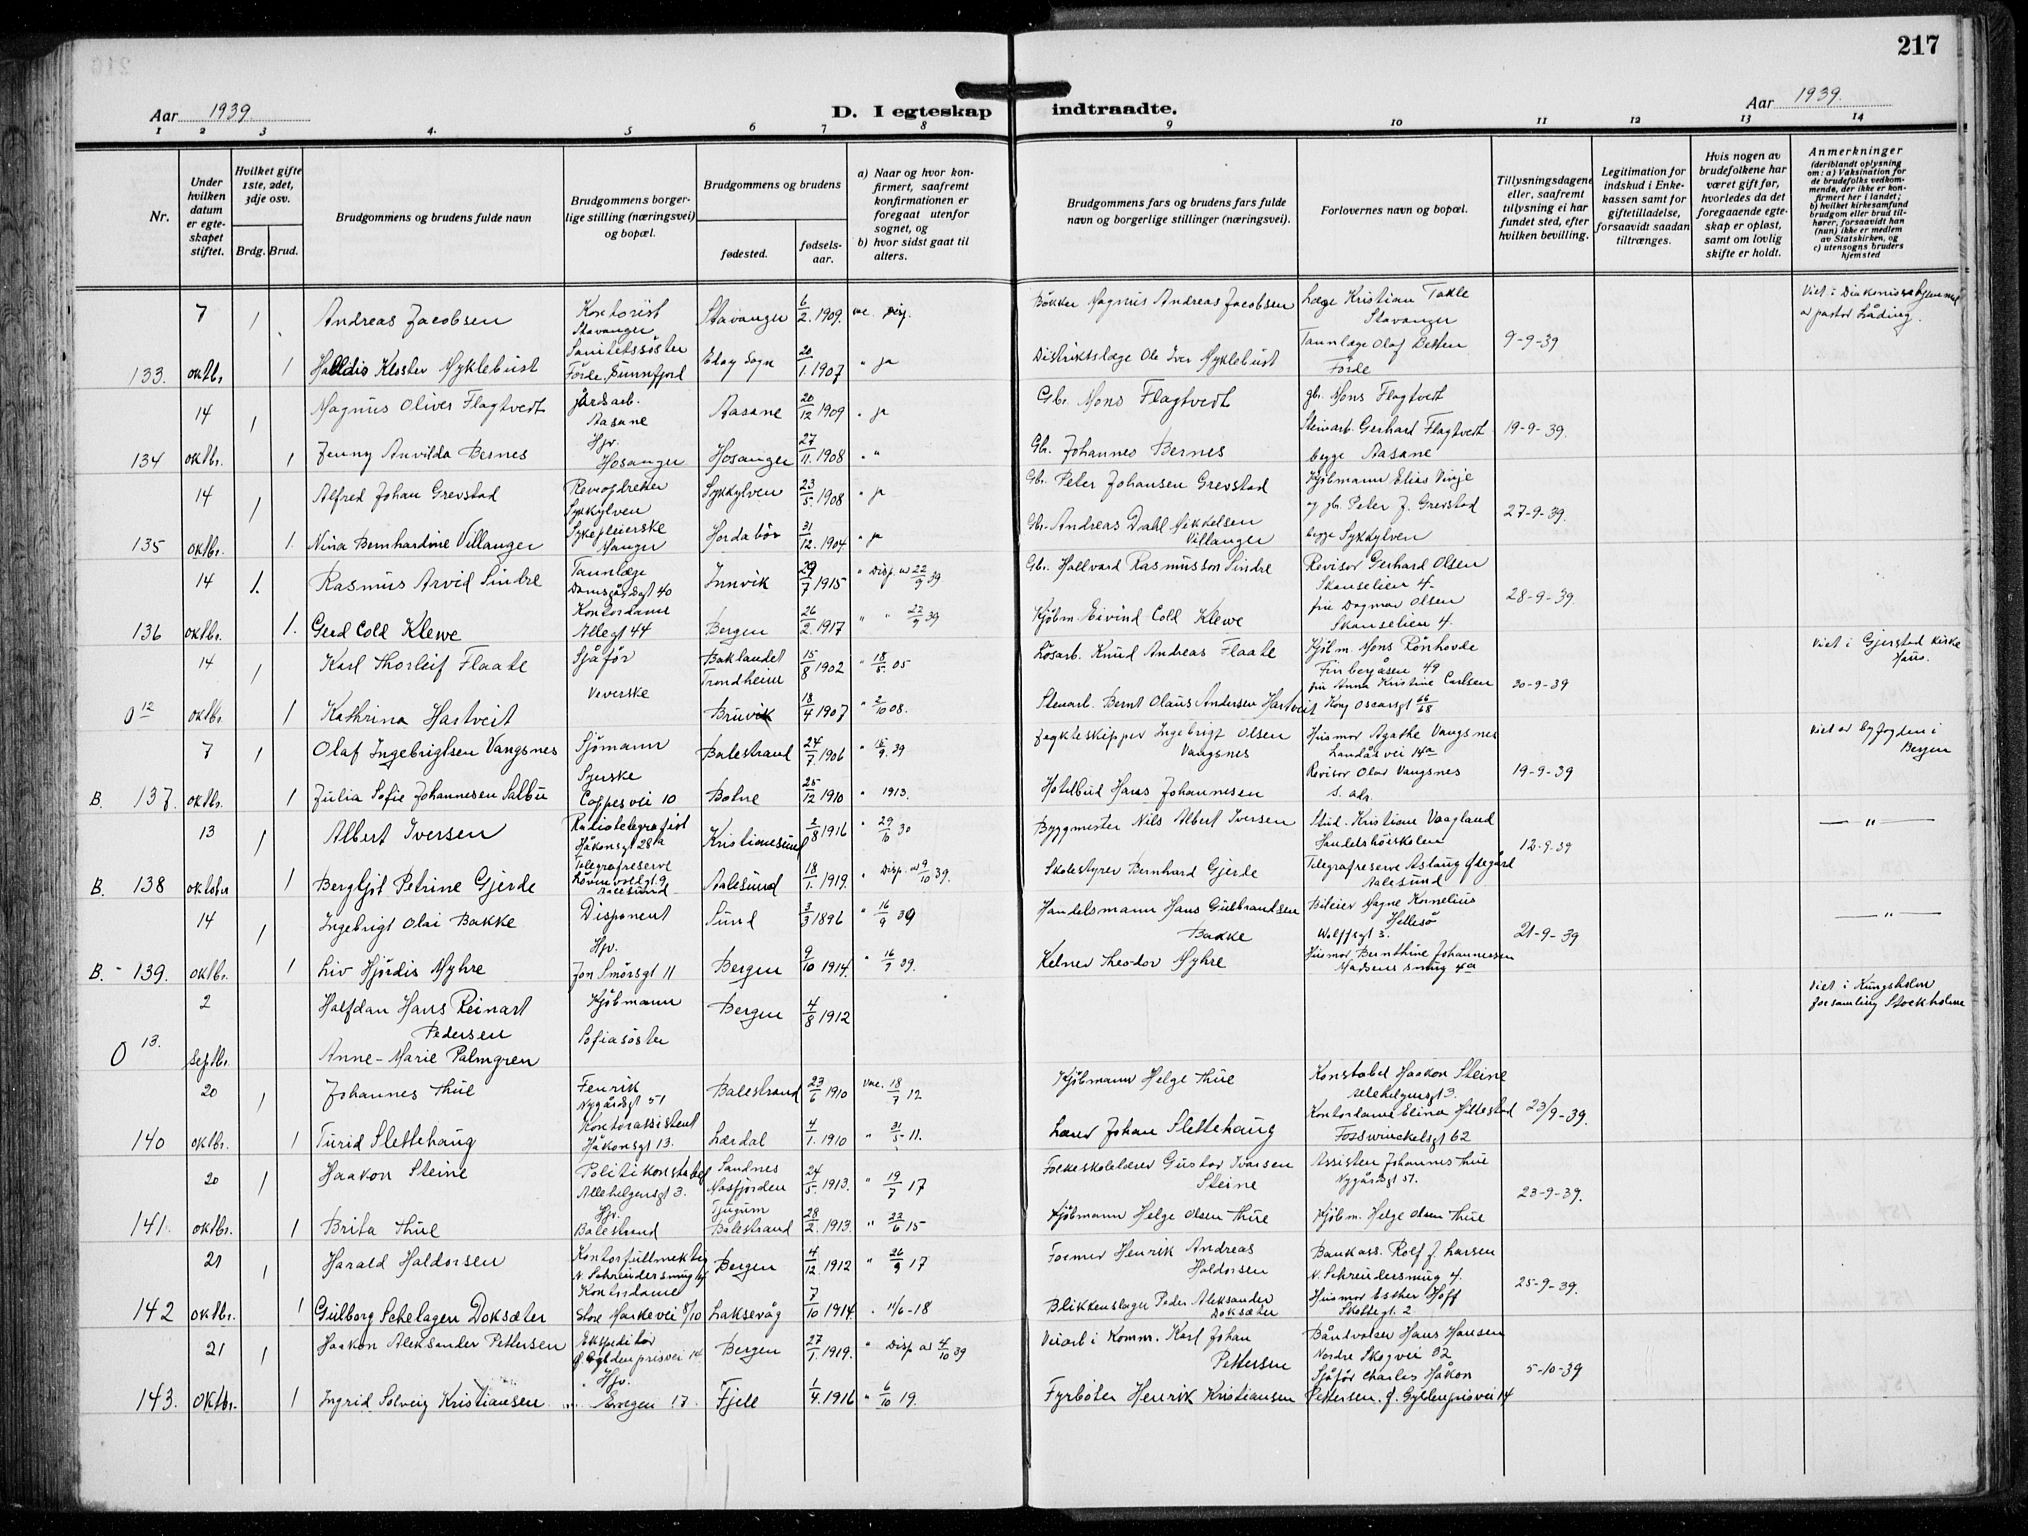 217
Aar 1939.
D. I egteskap indtraadte.
Aar 1939.
1 2 3 4. 5 6 7 8 9 10 11 12 13 14
Nr.
Under hvilken datum er egteskapet stiftet.
Hvilket gifte 1ste, 2det, 3dje osv.
Brdg. Brud.
Brudgommens og brudens fulde navn
Brudgommens borgerlige stilling (næringsvei) og bopæl.
Brudgommens og brudens
fødested.
fødselsaar.
a) Naar og hvor konfirmert, saafremt konfirmationen er foregaat utenfor sognet, og
b) hvor sidst gaat til alters.
Brudgommens fars og brudens fars fulde navn og borgerlige stillinger (næringsvei).
Forlovernes navn og bopæl.
Tillysningsdagene eller, saafremt tillysning ei har fundet sted, efter hvilken bevilling.
Legitimation for indskud i Enkekassen samt for giftetilladelse, forsaavidt saadan tiltrænges.
Hvis nogen av brudefolkene har været gift før, hvorledes da det foregaaende egteskap er opløst, samt om lovlig skifte er holdt.
Anmerkninger
(deriblandt oplysning om: a) Vaksination for de brudefolks vedkommende, der ikke er konfirmert her i landet; b) hvilket kirkesamfund brudgom eller brud tilhører, forsaavidt han (hun) ikke er medlem av Statskirken, og c) utensogns bruders hjemsted
7 1 Andreas Jacobsen Kontorist Stavanger Stavanger 6/2 1909. vac. Bøkker Magnus Andreas Jacobsen Læge Kristian Takle Stavanger
133. oktbr 1 Halldis Kloster Myklebust Sanitetssøster Førde, Sunnfjord Sogn 20/1. 1907 " ja Distriktslæge Ole Iver Myklebust Tannlæge Olaf Førde 9-9-39
14 1 Magnus Oliver Flagtvedt Jordarb. Aasane Aasane 20/12 1909 " ja Gbr. Mons Flagtvedt gbr. Mons Flagtvedt
134 oktbr. 1 Jenny Anvilda Bernes Hjv. Hosanger Hosanger 27/11. 1908 " " Gbr. Johannes Bernes Steinarb. Gerhard Flagtvedt begge Aasane 19-9-39.
14 1 Alfred Johan Grevstad Reveopdretter Sykkylven Sykkylven 23/5. 1908 " ja Gbr. Peter Johansen Grevstad Kjøbmann Elias Vinje
135 oktbr. 1. Nina Bernhardine Villanger Sykepleierske Manger Hordabø 31/12. 1904. " ja Gbr. Andreas Dahl Mikkelsen Villanger og gb. Peter J. Grevstad begge Sykkylven 27-9-39.
14 1. Rasmus Arvid Sindre Tannlæge Damsgårdsgt 40 Innvik 29/7 1915 " Disp. av 22/9 39 Gbr. Hallvard Rasmusson Sindre Revisor Gerhard Olsen Skanselien 4.
136 oktbr. 1. Gerd Cold Klewe Kontordame Allegt 44 Bergen 26/2. 1917 " " 22/9 39 Kjøbm. Eivind Cold Klewe fru Dagmar Olsen Skanselien 4. 28-9-39.
14 1 Karl Thorleif Flaate Sjåfør Baklandet Trondheim 15/8 1902 " 18/5. 05 Løsarb. Knud Andreas Flaate Kjøbm. Mons Rønhovde Finbergåsen 49 Viet i Gjerstad kirke Haus.
O 12 oktbr. 1 Kathrina Hartveit Veverske Bruvik 18/4 1907 " 2/10 08. Stenarb. Bernt Olaus Andersen Hartveit fru Anna Kristine Carlsen Kong Oscarsgt 66/68 30-9-39
7 1 Olaf Ingebrigtsen Vangsnes Sjømann Balestrand 24/7. 1906 Jagteskipper Ingebrigt Olsen Vangsnes Husmor Agathe Vangsnes Landåsvei 14a Viet av byfogden i Bergen
B. 137. oktbr. 1 Julia Sofie Johannesen Salbu Syerske Coppesvei 10 25/12 1910 " 1913. Hotelbud Hans Johannesen Revisor Olav Vangsnes s. adr. 19-9-39
13 1 Albert Iversen Radiotelegrafist Håkonsgt 28a Kristiansund 2/8 1916 Byggmester Nils Albert Iversen Stud. Kristian Vaagland Handelshøiskolen — " —
B. 138 oktober 1 Bergljot Petrine Gjerde Telegrafreserve Aalesund Aalesund 18/1. 1919. " Disp. av 9/10 39. Skolestyrer Bernhard Gjerde Telegrafreserve Aslaug Aalesund 12-9-39
14 1 Ingebrigt Olai Bakke Disponent Sund 3/3 1896 " 16/9 39 Handelsmann Hans Gulbrandsen Bakke Bileier Magne Kornelius Hellesø Wolffsgt 3. — " —
B. 139. oktbr. 1 Liv Hjørdis Myhre Hjv. Jon Smørsgt 11 Bergen 9/10 1914. Kelner Theodor Myhre Husmor Bernthine Johannessen Madsens smug 4a 21-9-39
2 Halfdan Hans Reinart Pedersen Kjøbmann Bergen 4/8 1912 Viet i Kungsholm forsamling Stockholm
O 13. septbr. Anne-Marie Palmgren Sofiasøster
20 1 Johannes Thue Fenrik Nygårdsgt 51 Balestrand 23/6 1910 vac. 18/7 12 Kjøbmann Helge Thue Konstabel Haakon Steine Allehelgensgt 3.
140 oktbr. 1 Turid Slettehaug Kontorassistent Håkonsgt 13. Lærdal 4/1. 1910 " 31/5 - 11. Lærer Johan Slettehaug Kontordame Elina Hillestad Fosswinckelsgt 62 23/9-39.
20 1 Haakon Steine Politikonstabel Allehelgensgt 3. Sandnes Masfjorden 24/5. 1913. " 19/7 17 Folkeskolelærer Gustav Ivarsen Steine Assistent Johannes Thue Nygårdsgt 51.
141. oktbr. 1 Brita Thue Hjv. Balestrand Tjugum Balestrand 28/2. 1913. " 22/6 15 Kjøbmann Helge Olsen Thue Kjøbm. Helge Olsen Thue 23-9-39.
21 1 Harald Haldorsen Kontorfullmektig N. Schreudersmug 4 Bergen 4/12. 1912 " 26/9 17 Former Henrik Andreas Haldorsen Bankass. Rolf J. Larsen N. Schreudersmug 4.
142 oktbr. 1 Gulborg Schelagen Doksæter Kontordame Store Markevei 8/10 Laksevåg 7/10 1914. " 11/6-18 Blikkenslager Peder Aleksander Doksæter Husmor Esther Hoff Skottegt. 2 25-9-39.
21 1 Haakon Aleksander Pettersen Ekspeditør Ø. Gyldenprisvei 14 Bergen 27/1. 1919. " Disp av 4/10 39 Veiarb i Komm. Karl Johan Pettersen Båndvalser Hans Hansen Nordre Skogvei 32
143. oktbr. 1 Ingrid Solveig Kristiansen Hjv. 17 Fjell 1/4. 1916 " 6/10 19. Fyrbøter Henrik Kristiansen Sjåfør Charles Håkon Pettersen. Ø. Gyldenprisvei 14 5-10-39